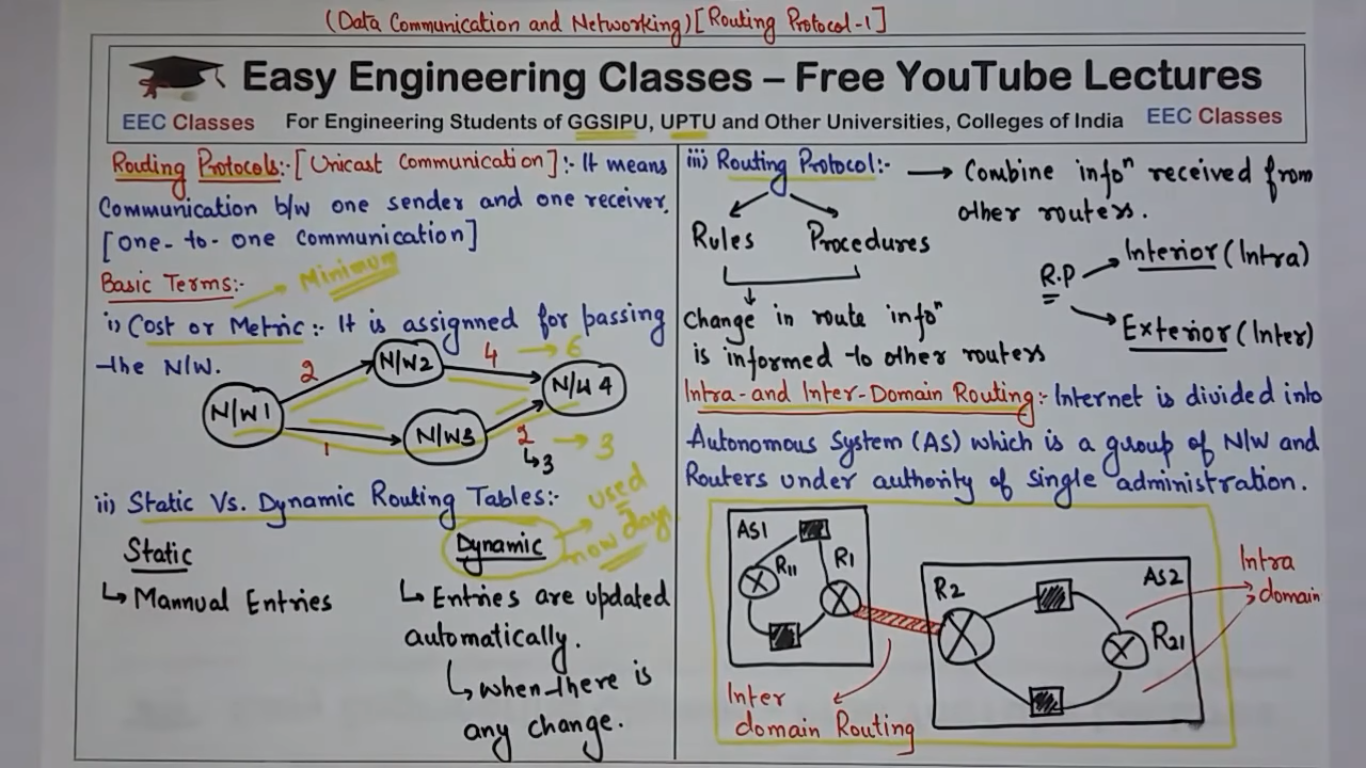 (Data Communication and Networking) [Routing Protocol-1]
Easy Engineering Classes – Free YouTube Lectures
EEC Classes For Engineering Students of GGSIPU, UPTU and Other Universities, Colleges of India EEC Classes
Routing Protocols:- [Unicast Communication]:- It means
Communication b/w one sender and one receiver.
[One-to-one Communication]
Basic Terms:-
Minimum
i) Cost or Metric:- It is assignned for passing
the N/W.
2
N/W2
4
6
N/W 4
N/W1
1
N/W3
2
3
3
ii) Static Vs. Dynamic Routing Tables:-
used
now days
Static
Dynamic
Mannual Entries
Entries are updated
automatically.
when there is
any change.
iii) Routing Protocol:- → Combine infoⁿ received from
other routers.
Rules Procedures
R.P
Interior (Intra)
Exterior (Inter)
Change in route infoⁿ
is informed to other routers
Intra-and Inter-Domain Routing:- Internet is divided into
Autonomous System (AS) which is a group of N/W and
Routers under authority of single administration.
AS1
R11
R1
R2
AS2
R21
Intra
domain
Inter
domain Routing